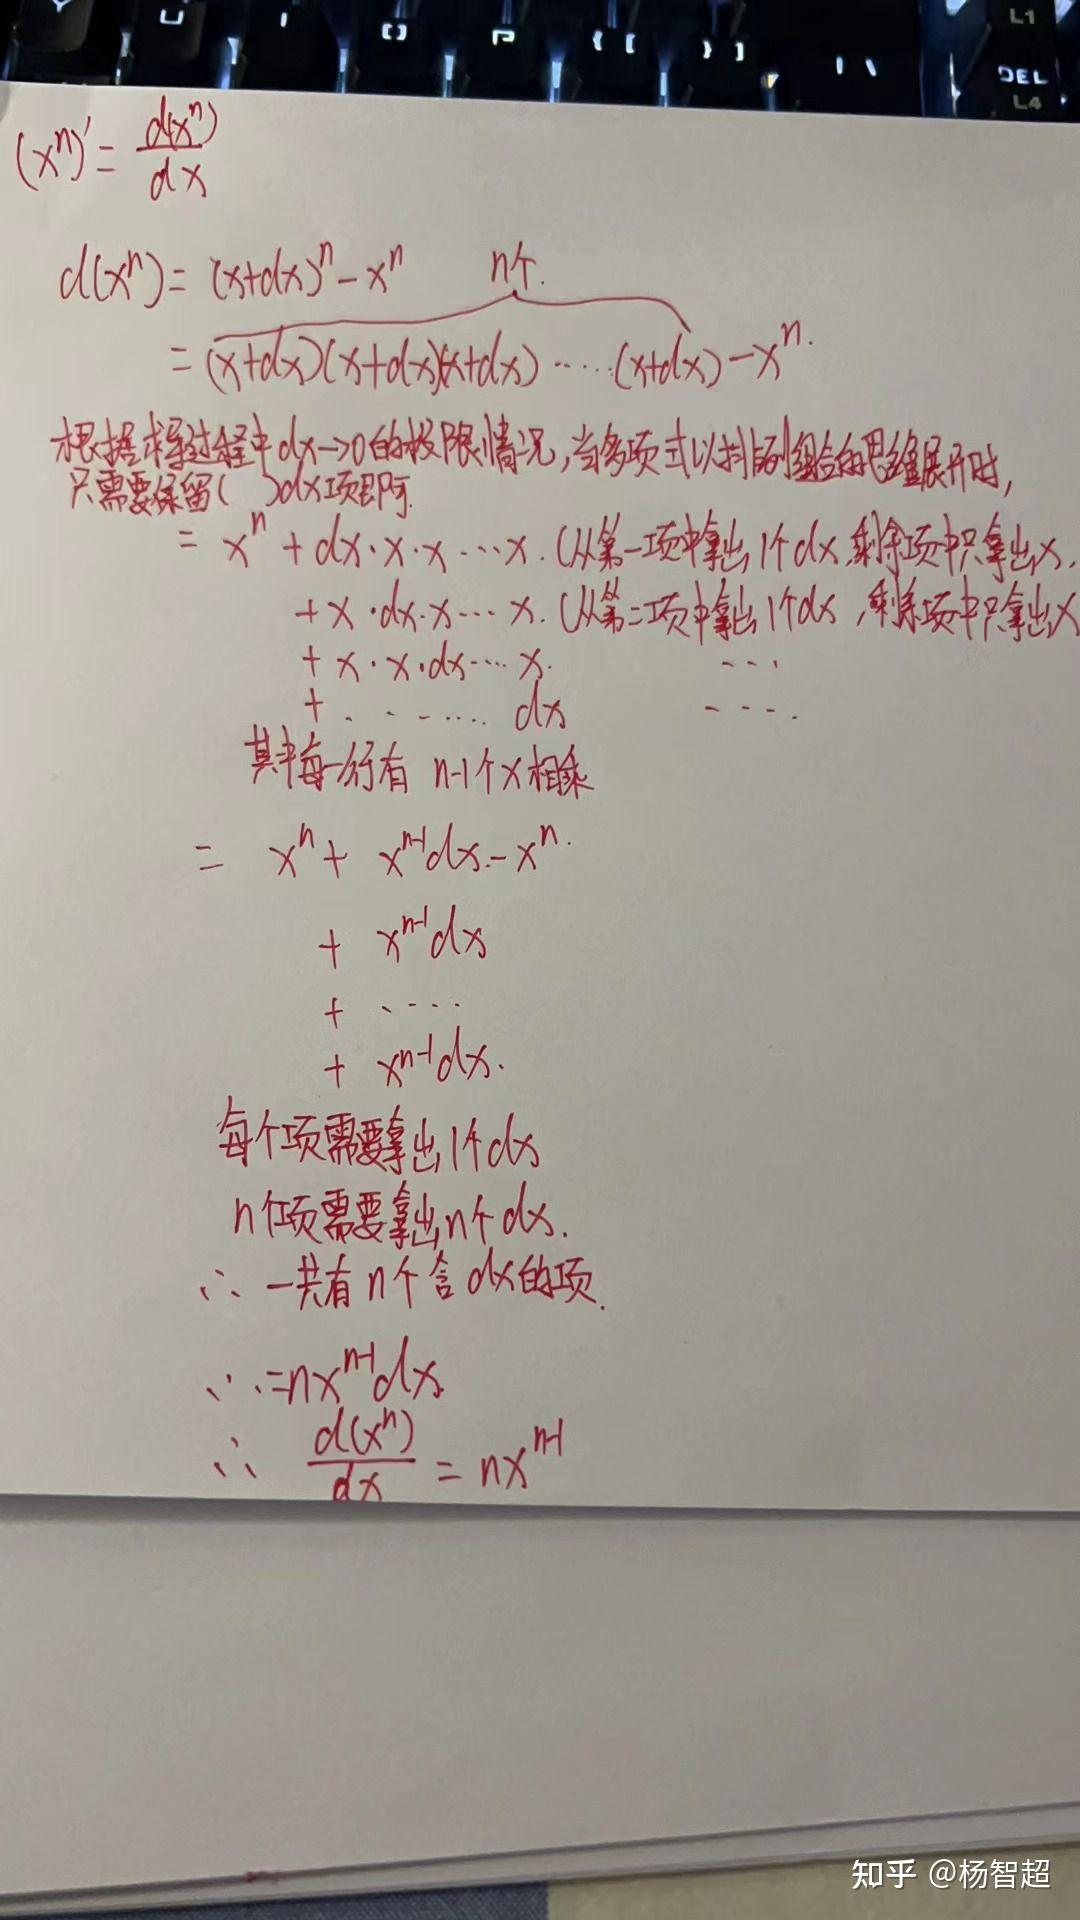 L1
DEL
L4
(xⁿ)' = d(xⁿ)/dx
d(xⁿ) = (x+dx)ⁿ - xⁿ n个.
= (x+dx)(x+dx)(x+dx)·····(x+dx) - xⁿ.
根据求导过程中dx→0的极限情况,当多项式以排列组合的思维展开时,
只需要保留( )dx项即可.
= xⁿ + dx·x·x···x. (从第一项中拿出1个dx,剩余项中只拿出x.
+ x·dx·x···x. (从第二项中拿出1个dx,剩余项中只拿出x
+ x·x·dx···x. ···
+ ······· dx ····.
其中每一行有 n-1个x相乘
= xⁿ + xⁿ⁻¹dx - xⁿ.
+ xⁿ⁻¹dx
+ ····
+ xⁿ⁻¹dx.
每个项需要拿出1个dx
n个项需要拿出n个dx.
∴ 一共有n个含dx的项.
∴ = nxⁿ⁻¹dx.
∴ d(xⁿ)/dx = nxⁿ⁻¹
知乎 @杨智超